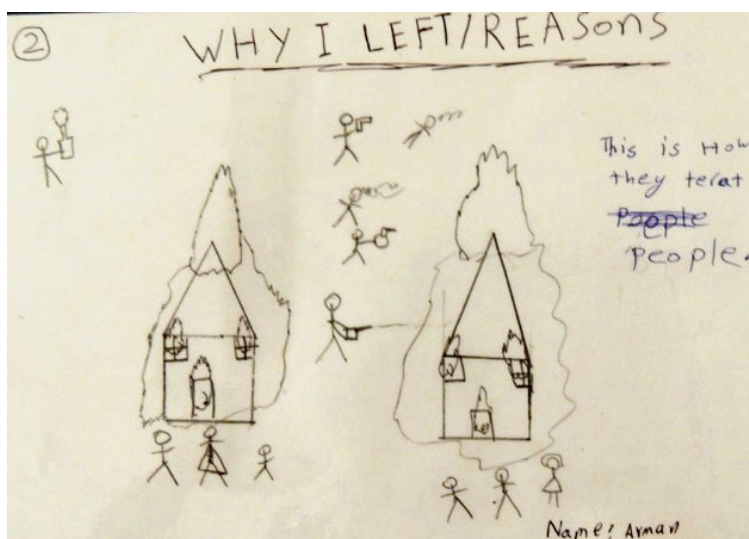 2
WHY I LEFT/REASONS
This is How
they terat
people
people.
Name: Arman